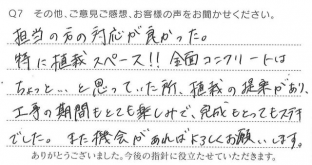 Q7 その他、ご意見ご感想、お客様の声をお聞かせください。
担当の方の対応が良かった。
特に植栽スペース!! 全面コンクリートは
ちょっと…と思っていた所、植栽の提案があり、
工事の期間もとても楽しみで、完成もとってもステキ
でした。また機会があればよろしくお願いします。
ありがとうございました。今後の指針に役立たせていただきます。